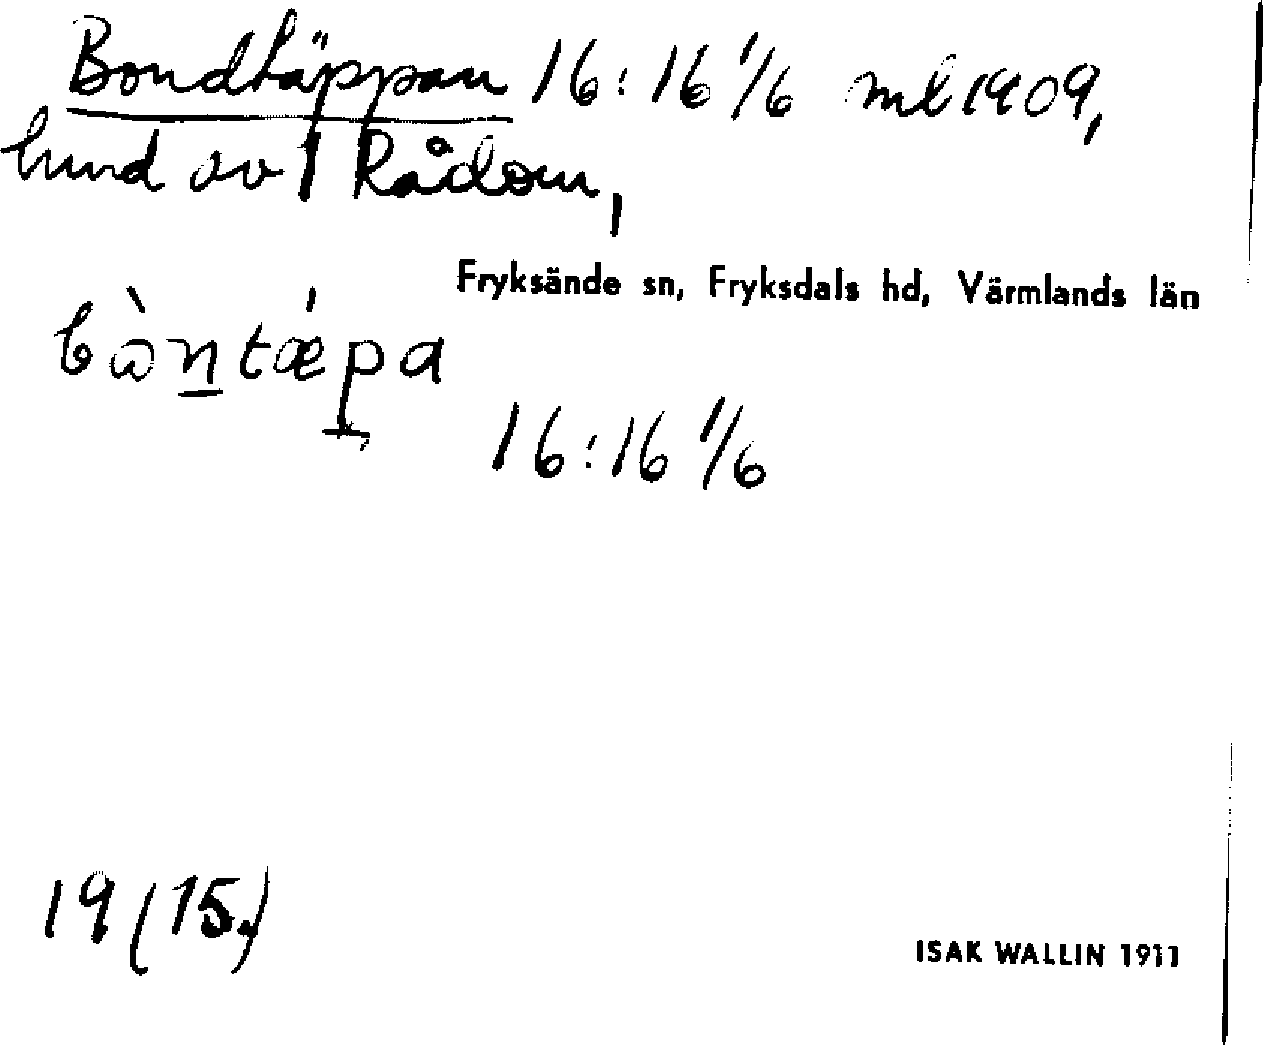 Bondtäppan 16:16 1/6 ml 1909,
hmd av Rådom,
Fryksände sn, Fryksdals hd, Värmlands län
bὼn̲tǽpa
16:16 1/6
19 (15.)
ISAK WALLIN 1911